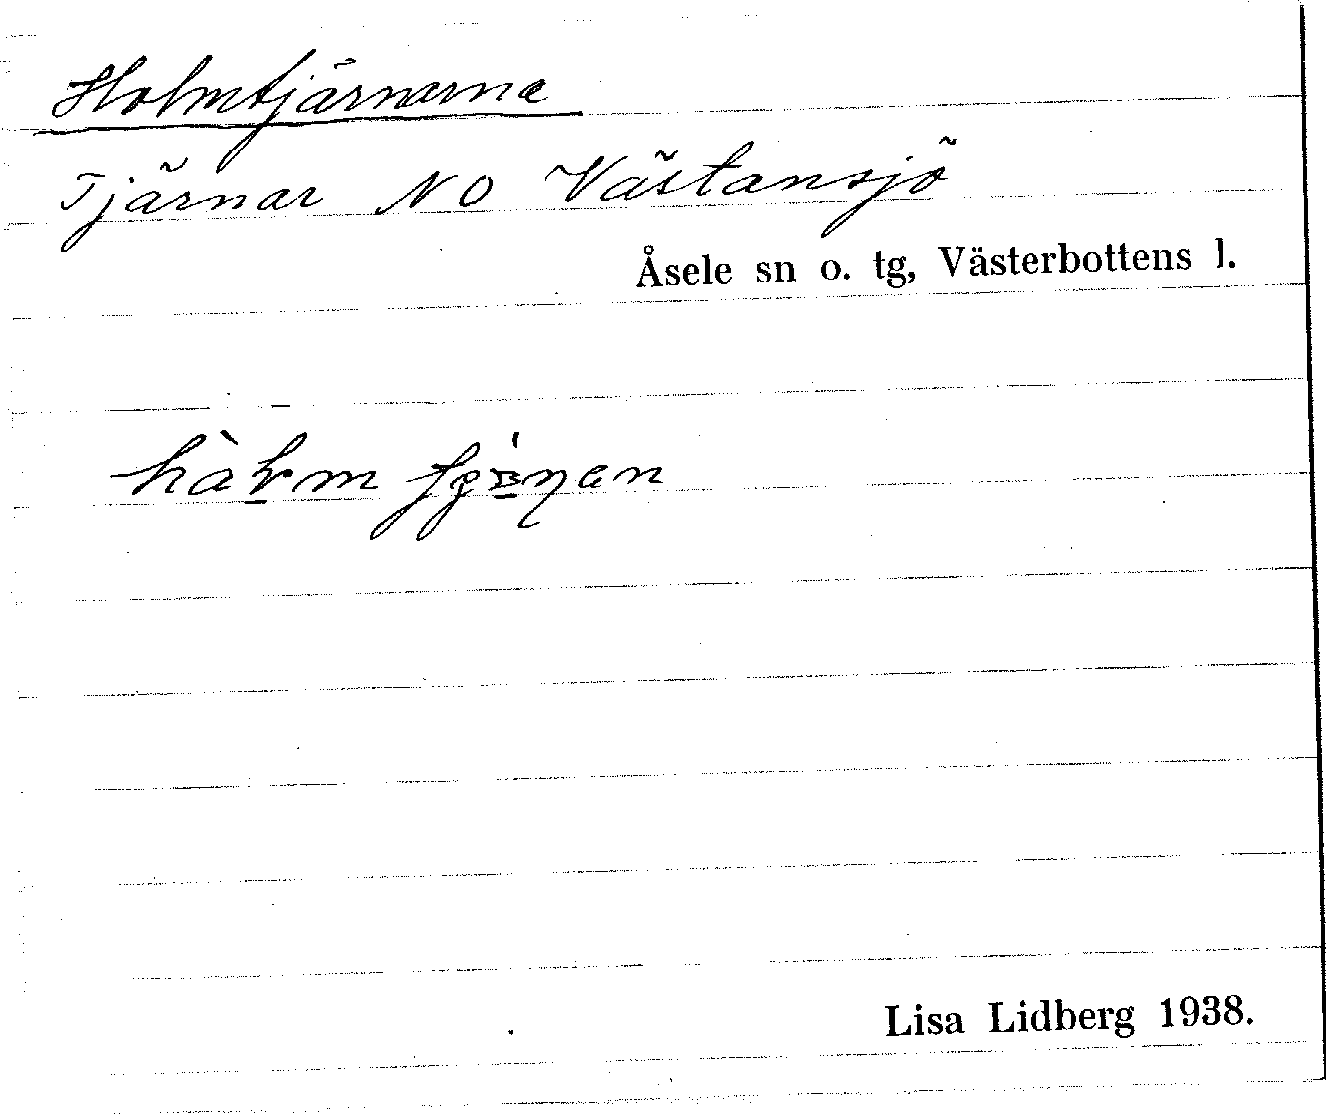 Holmtjärnarna
Tjärnar NO Västansjö
Åsele sn o. tg, Västerbottens l.
Lisa Lidberg 1938.